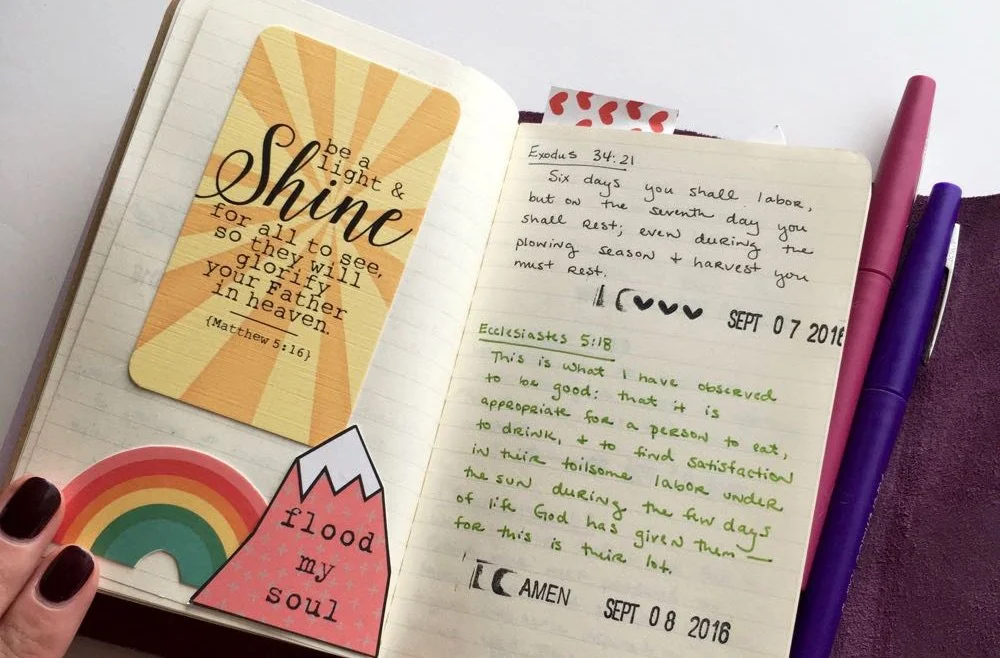 be a
light &
Shine
for all to see,
so they will
glorify
your Father
in heaven.
{Matthew 5:16}
flood
my
soul
Exodus 34:21
Six days you shall labor,
but on the seventh day you
shall Rest; even during the
plowing season + harvest you
must Rest.
SEPT 07 2016
Ecclesiastes 5:18
This is what I have observed
to be good: that it is
appropriate for a person to eat,
to drink, + to find satisfaction
in their toilsome labor under
the sun during the few days
of life God has given them —
for this is their lot.
AMEN
SEPT 08 2016